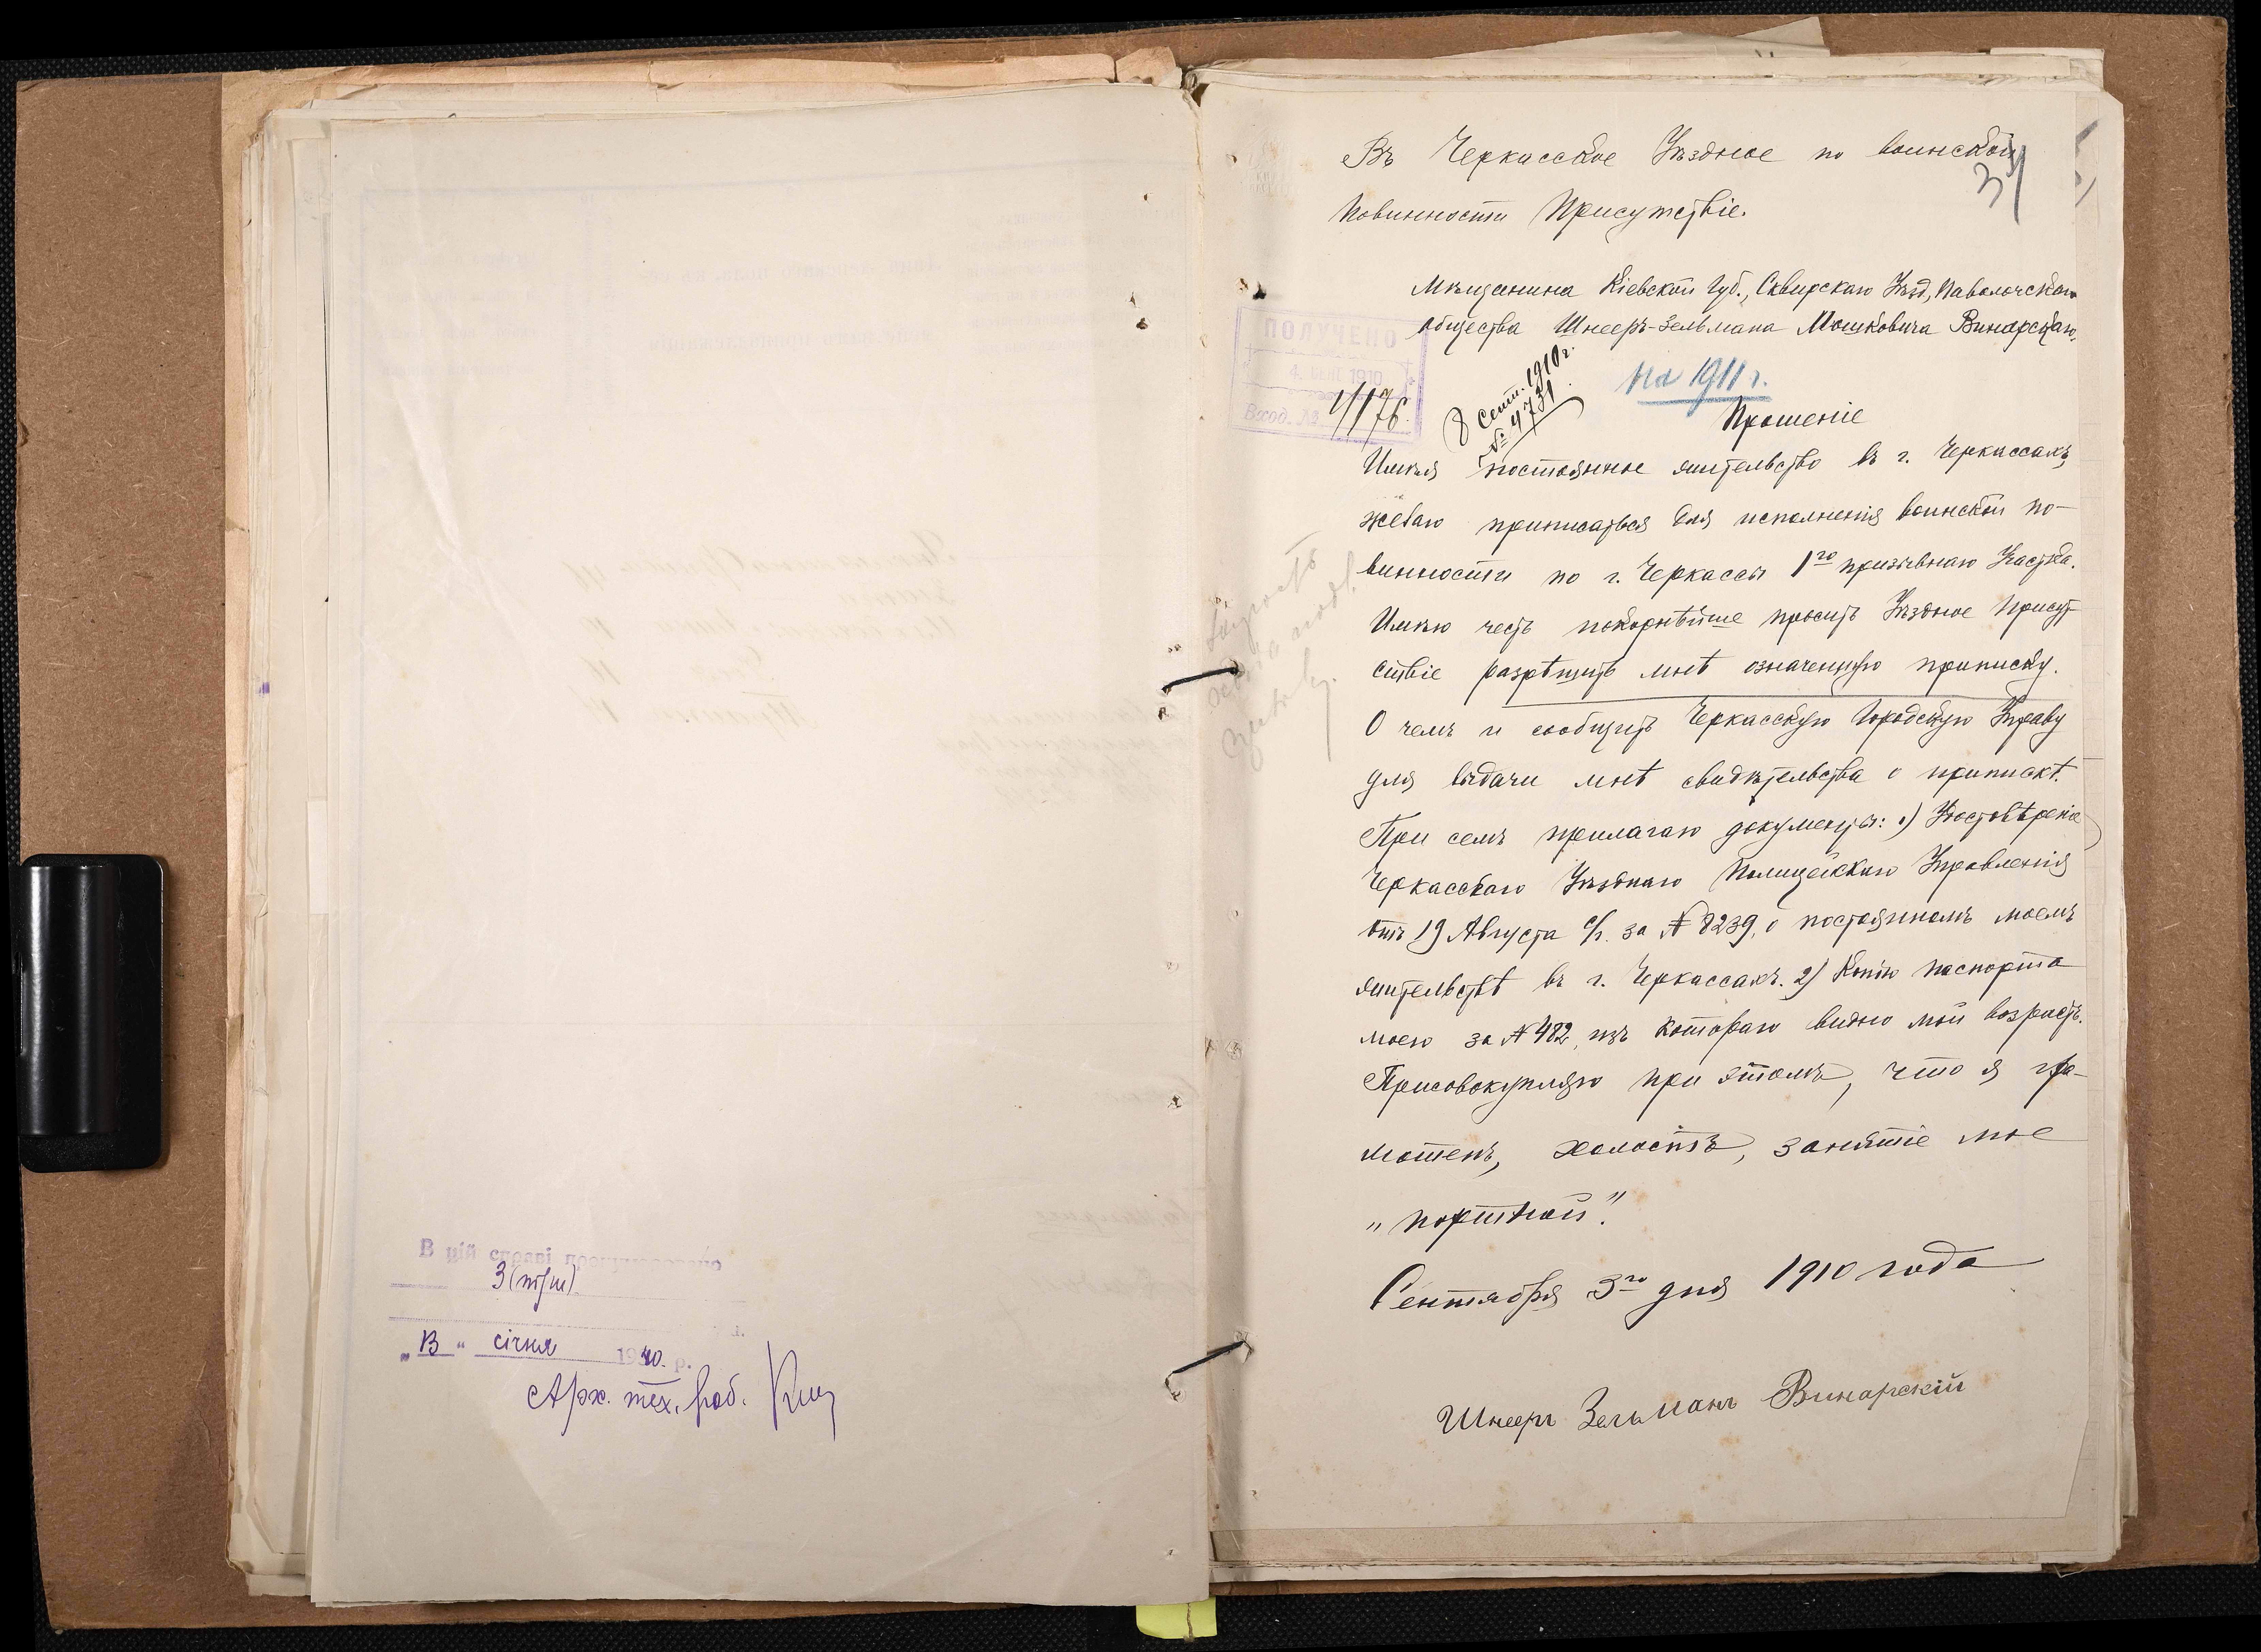 В цій справі пронумеровано
3 (три)
"13" січня 1940 р.
Арх. тех. роб.
Въ Черкасское Уѣздное по воинской
3
Повинности Присутствіе.
Мѣщанина Кіевской Губ., Сквирскаго Уѣзд, Паволочскаго
общества Шнееръ-Зельмана Мошковича Винарскаго,
ПОЛУЧЕНО
4. СЕНТ 1910
Вход. №
4176.
8 Сент. 1910 г.
№ 4731
На 1911 г.
Прошеніе
Имѣя постоянное жительство въ г. Черкассахъ,
желаю приписаться для исполненія воинской по-
винности по г. Черкассы 1го призывнаго Участка.
Имѣю честь покорнѣйше просить Уѣздное Присут
ствіе разрѣшить мнѣ означенную приписку.
О чемъ и сообщить Черкасскую Городскую Управу
для выдачи мнѣ свидѣтельства о припискѣ.
При семъ прилагаю документы: 1) Удостовѣреніе
Черкасскаго Уѣзднаго Полицейскаго Управленія
отъ 19 Августа с/г. за № 8239, о постоянномъ моемъ
жительствѣ въ г. Черкассахъ. 2) Копію паспорта
моего за № 482, изъ котораго видно мой возрастъ.
Присовокупляю при этомъ, что я гра-
мотенъ, холостъ, занятіе мое
„портной".
Сентября 3го дня 1910 года
Шнееръ Зельманъ Винарскій